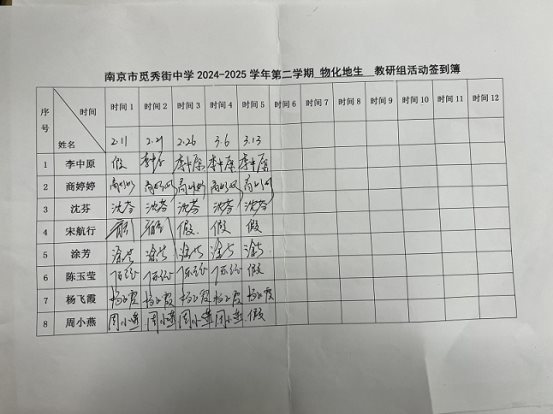 南京市觅秀街中学 2024-2025 学年第二学期 物化地生 教研组活动签到簿
序号 时间 姓名 时间 1 时间 2 时间 3 时间 4 时间 5 时间 6 时间 7 时间 8 时间 9 时间 10 时间 11 时间 12
2.11 2.21 2.26 3.6 3.13
1 李中原 假 李中原 李中原 李中原 李中原
2 商婷婷 商婷婷 商婷婷 商婷婷 商婷婷 商婷婷
3 沈芬 沈芬 沈芬 沈芬 沈芬 沈芬
4 宋航行 假 假 假
5 涂芳 涂芳 涂芳 涂芳 涂芳 涂芳
6 陈玉莹 假
7 杨飞霞 杨飞霞 杨飞霞 杨飞霞 杨飞霞 杨飞霞
8 周小燕 周小燕 周小燕 周小燕 周小燕 假